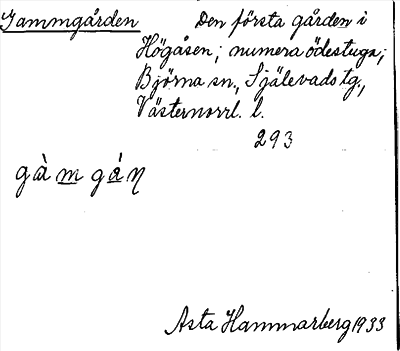 Gammgården Den första gården i
Högåsen; numera ödestuga;
Björna sn., Själevads tg.,
Västernorrl. l.
293
gàm gáꞑ
Asta Hammarberg 1933